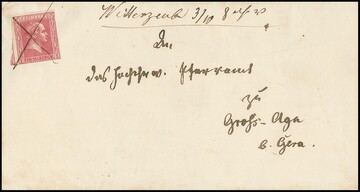 Wittezeuth 3/10 8
An
das Hochehrw. Pfarramt
zu
Groß-Aga
b. Gera.